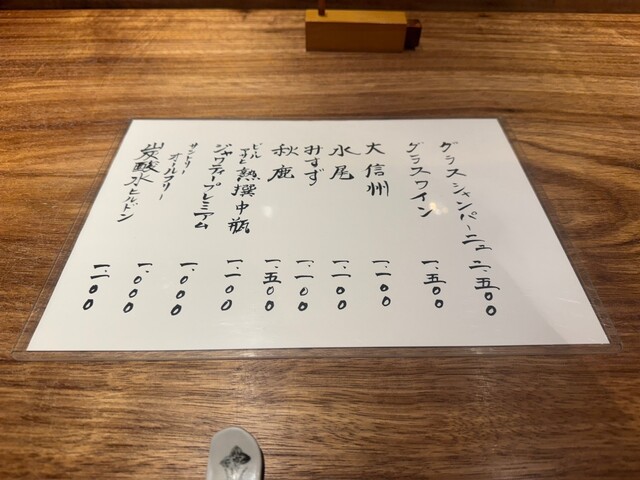 グラスシャンパーニュ 二、五〇〇
グラスワイン 一、五〇〇
大信州 一、一〇〇
水尾 一、一〇〇
みすず 一、一〇〇
秋鹿 一、五〇〇
ビール アサヒ 熟撰中瓶 一、一〇〇
ジャワティープレミアム 一、〇〇〇
サントリー オールフリー 一、〇〇〇
炭酸水ヒルドン 一、一〇〇